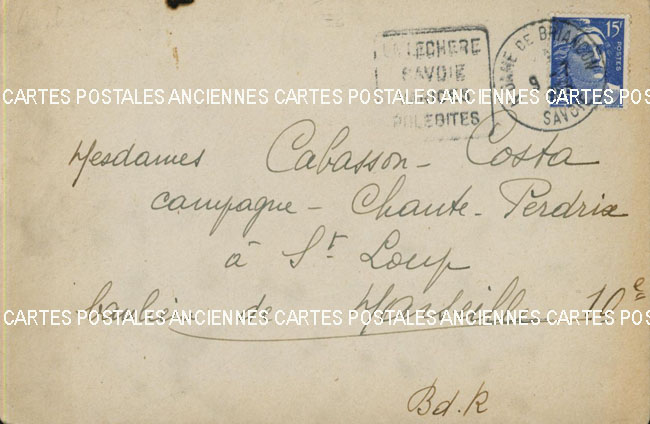 LA LECHERE
SAVOIE
PHLEBITES
DAME DE BRIANCON
SAVOIE
9
15F
POSTES
CARTES POSTALES ANCIENNES CARTES POSTALES ANCIENNES CARTES POSTALES ANCIENNES CARTES
Mesdames Cabasson - Costa
campagne - Chante - Perdrix
à St. Loup
banlieue de Marseille 10e
CARTES POSTALES ANCIENNES CARTES POSTALES ANCIENNES CARTES POSTALES ANCIENNES CARTES
Bd. R